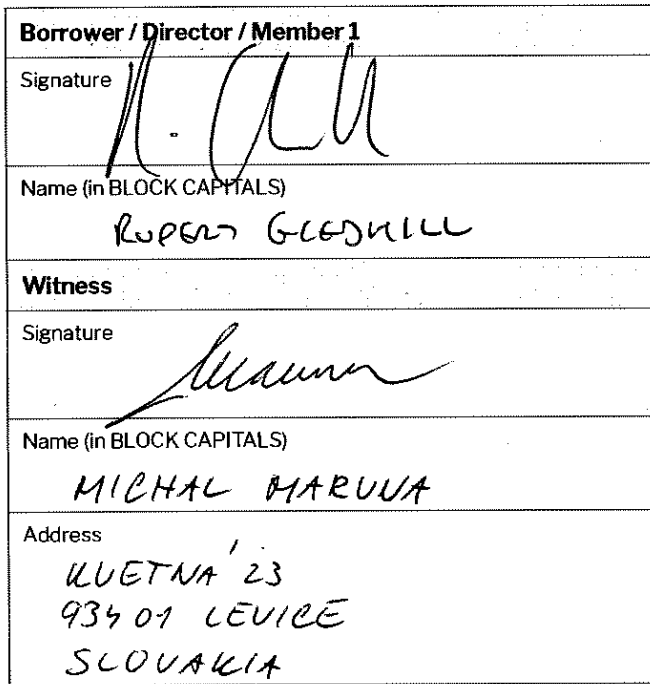 Borrower / Director / Member 1
Signature
Name (in BLOCK CAPITALS)
RUPERT GLEDHILL
Witness
Signature
Name (in BLOCK CAPITALS)
MICHAL MARUNA
Address
KVETNÁ 23
93401 LEVICE
SLOVAKIA